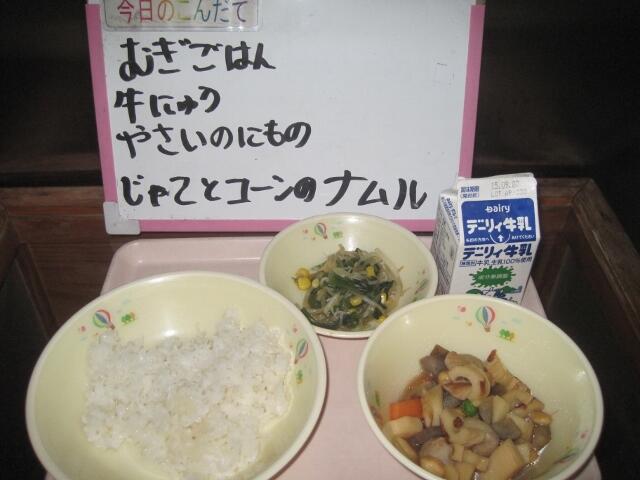 今日のこんだて
むぎごはん
牛にゅう
やさいのにもの
じゃことコーンのナムル
Dairy
デーリィ牛乳
デーリィ牛乳
牛乳 生乳100%使用